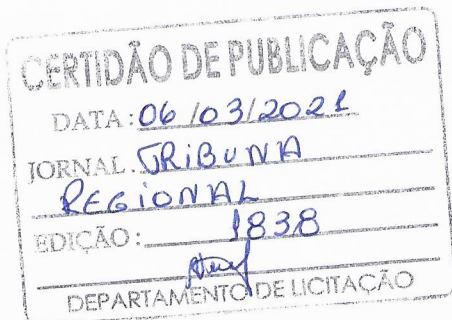 CERTIDÃO DE PUBLICAÇÃO
DATA: 06/03/2021
JORNAL. TRIBUNA
REGIONAL
EDIÇÃO: 1838
DEPARTAMENTO DE LICITAÇÃO